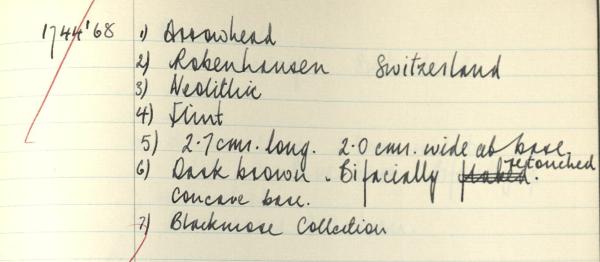 1744'68 1) Arrowhead
2) Robenhausen Switzerland
3) Neolithic
4) Flint
5) 2.7 cms. long. 2.0 cms. wide at base
6) Dark brown. Bifacially flaked retouched.
concave base.
7) Blackmore Collection